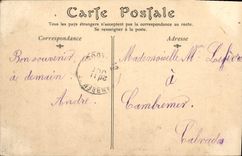 Carte Postale
Tous les pays étrangers n'acceptent pas la correspondance au recto.
Se renseigner à la poste.
Correspondance
Adresse
Bon souvenir et
à demain
André
Mademoiselle M.
à
Cambremer
Calvados